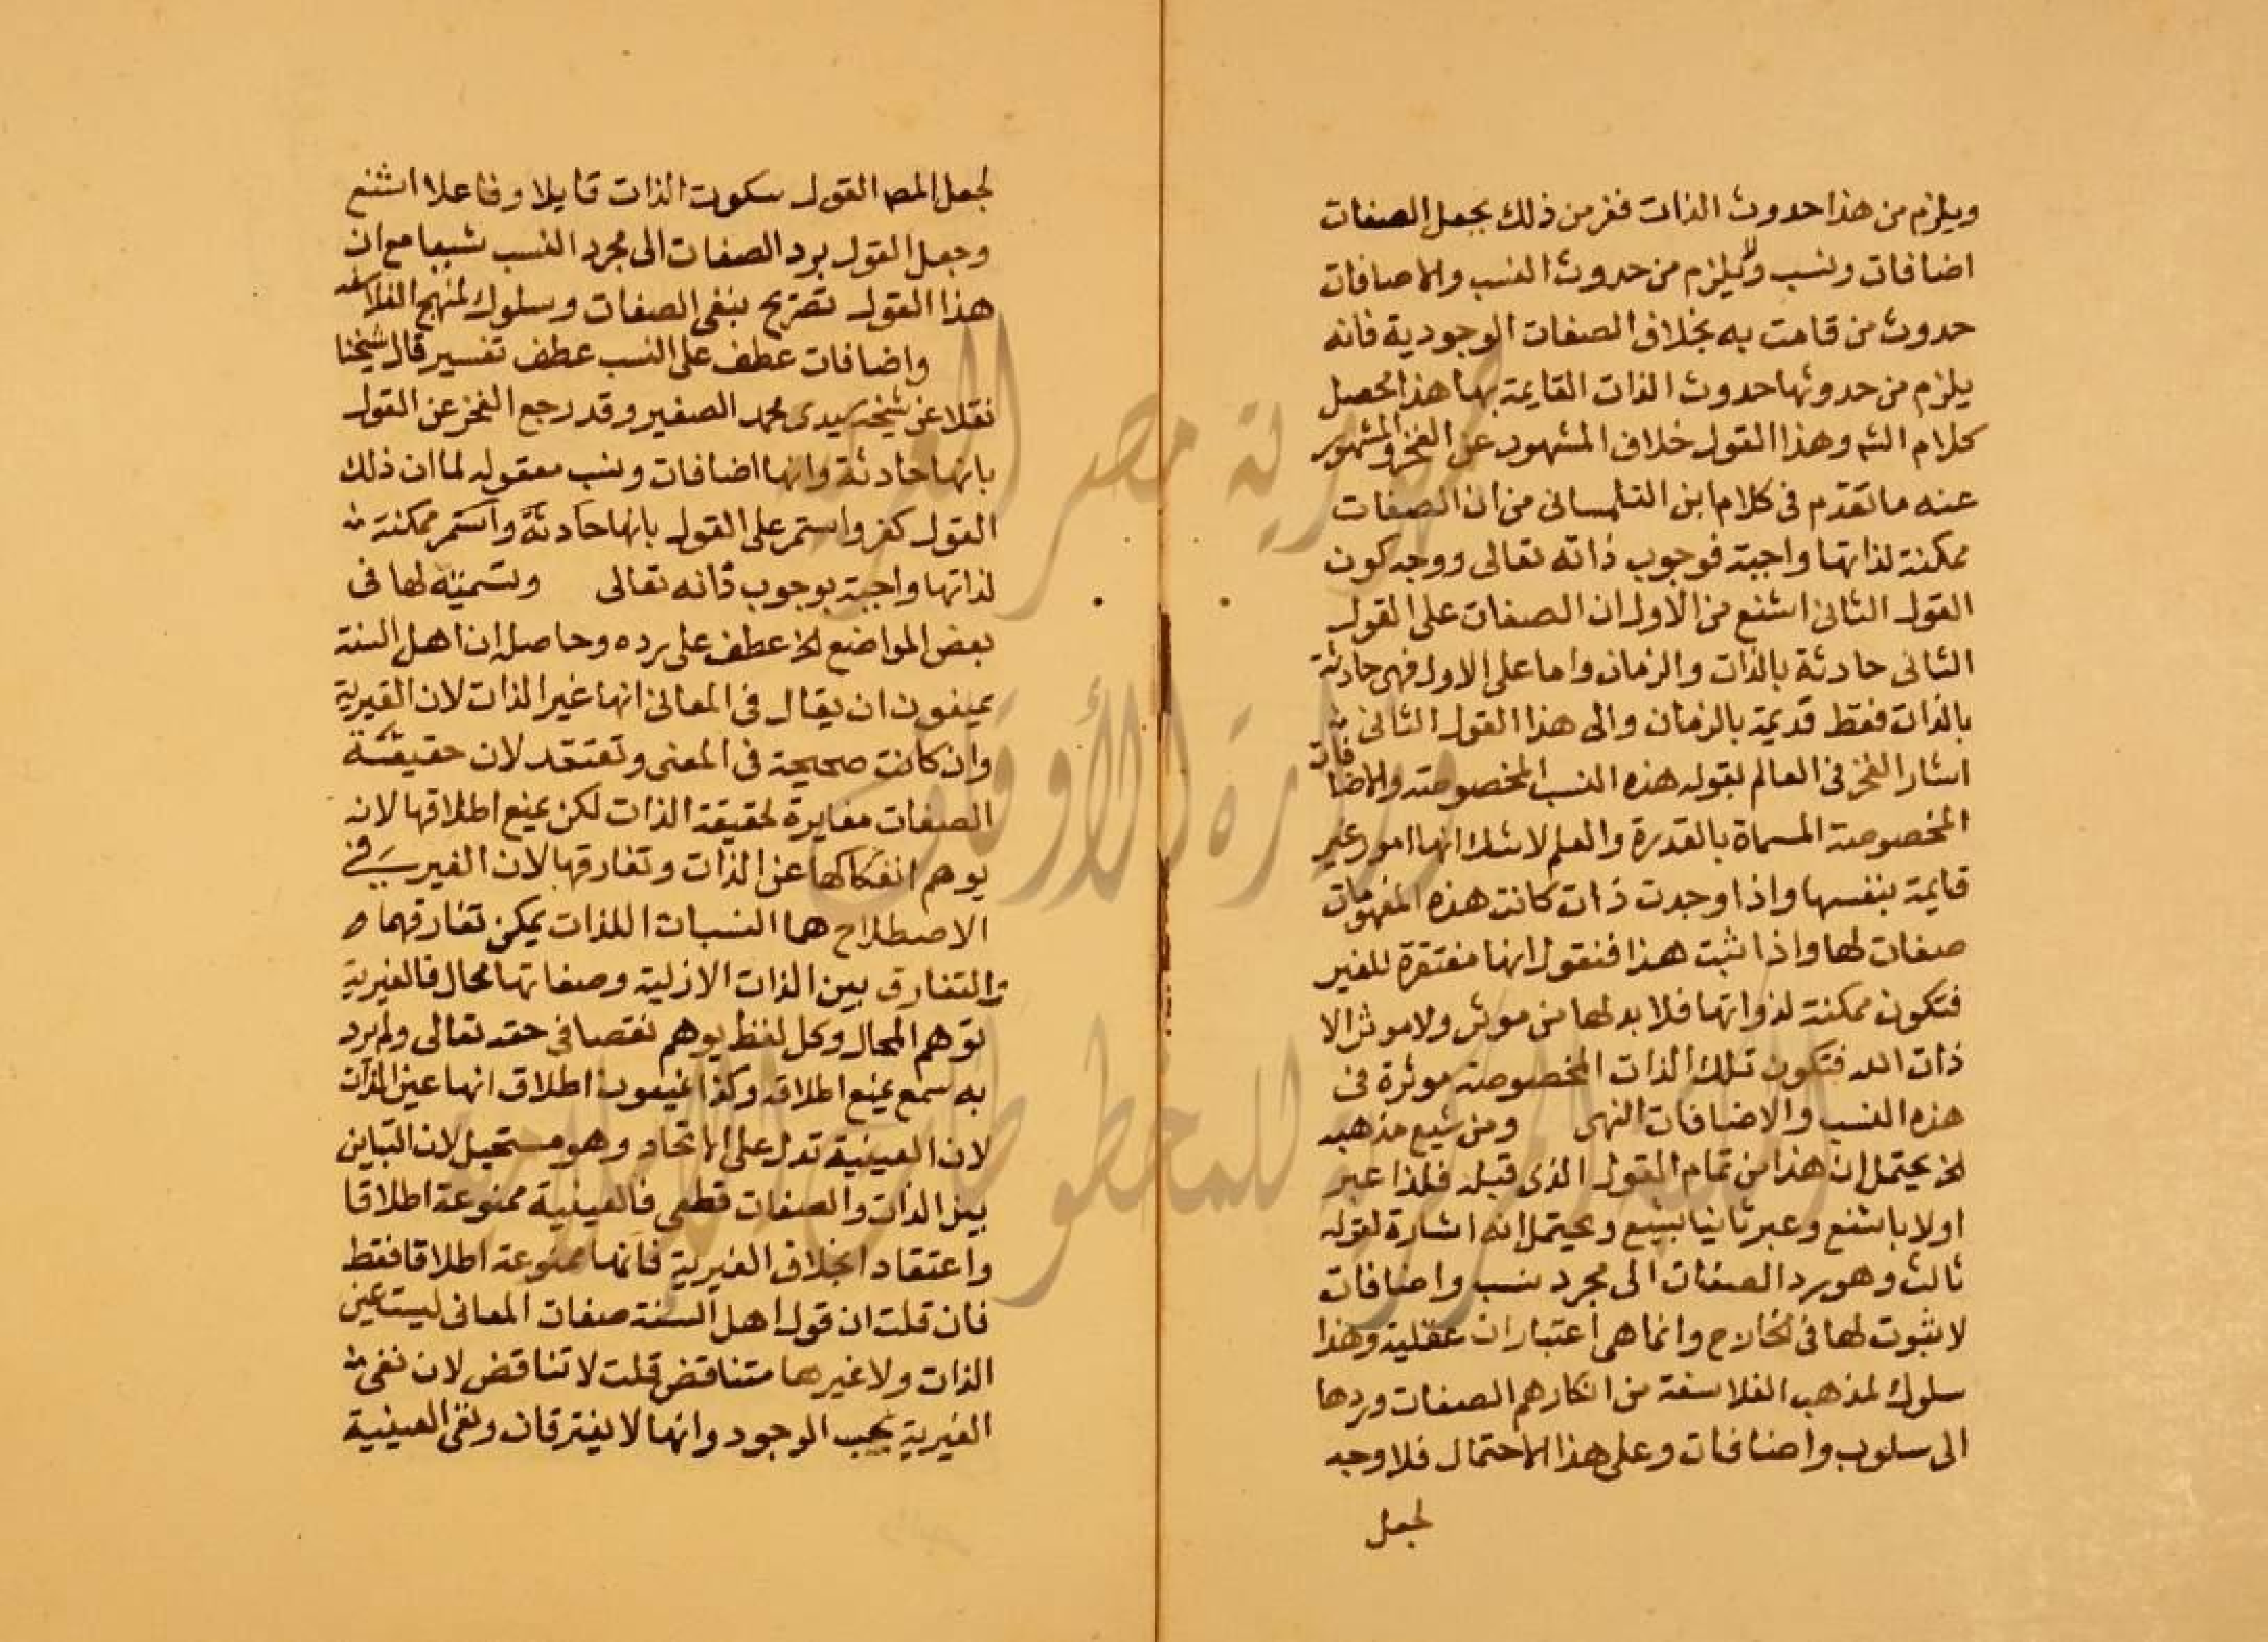 ويلزم من هذا حدوث الذات ففر من ذلك بجعل الصفات
اضافات ونسب ولا يلزم من حدوث النسب والاضافات
حدوث من قامت به بخلاف الصفات الوجودية فانه
يلزم من حدوثها حدوث الذات القايمة بها هذا محصل
كلام الشه وهذا القول خلاف المشهور عن الفخر والمشهور
عنه ما تقدم في كلام ابن التلمساني من ان الصفات
ممكنة لذاتها واجبة فوجوب ذاته تعالى ووجه كون
القول الثاني اشنع من الاول ان الصفات على القول
الثاني حادثة بالذات والزمان واما على الاول فهى حادثة
بالذات فقط قديمة بالزمان والى هذا القول الثاني
اشار الفخر في المعالم بقوله هذه النسب المخصوصة والاضافات
المخصوصة المسماة بالقدرة والعلم لا شك انها امور غير
قايمة بنفسها واذا وجدت ذات كانت هذه المفهومات
صفات لها واذا ثبت هذا فنقول انها مفتقرة للغير
فتكون ممكنة لذواتها فلا بد لها من موثر ولا موثر الا
ذات الله فتكون تلك الذات المخصوصة موثرة في
هذه النسب والاضافات انتهى ومن شيع مذهبه
الخ يحتمل ان هذا من تمام القول الذى قبله فلذا عبر
اولا باشنع وعبر ثانيا بشيع ويحتمل انه اشارة لقوله
ثالث وهو رد الصفات الى مجرد نسب واضافات
لا ثبوت لها في الخارج وانما هى اعتبارات عقلية وهذا
سلوك لمذهب الفلاسفة من انكارهم الصفات وردها
الى سلوب واضافات وعلى هذا الاحتمال فلا وجه
لجعل
لجعل المص القول بكون الذات قابلا وفاعلا اشنع
وجعل القول برد الصفات الى مجرد النسب شيعا مع ان
هذا القول تصريح بنفى الصفات وسلوك لمنهج الفلاسفة
واضافات عطف على النسب عطف تفسير قال شيخنا
نقلا عن شيخه سيدى محمد الصغير وقد رجع الفخر عن القول
بانها حادثة وانها اضافات ونسب معقوله لما ان ذلك
القول كفر واستمر على القول بانها حادثة واستمر ممكنة
لذاتها واجبة بوجوب ذاته تعالى وتسميته لها في
بعض المواضع الخ عطف على رده وحاصله ان اهل السنة
يمنعون ان يقال في المعانى انها غير الذات لان الغيرية
وان كانت صحيحة في المعنى وتعتقد لان حقيقة
الصفات مغايرة لحقيقة الذات لكن يمنع اطلاقها لانه
يوهم انفكاكها عن الذات وتفارقها لان الغيرين في
الاصطلاح هما النسبات اللذات يمكن تفارقهما
والتفارق بين الذات الازلية وصفاتها محال فالغيرية
توهم المحال وكل لفظ يوهم نقصا في حقه تعالى ولم يرد
به سمع يمنع اطلاقه وكذا يمنعون اطلاق انها عين الذات
لان العينية تدل على الاتحاد وهو مستحيل لان التباين
بين الذات والصفات قطعى فالعينية ممنوعة اطلاقا
واعتقادا بخلاف الغيرية فانها ممنوعة اطلاقا فقط
فان قلت ان قول اهل السنة صفات المعانى ليست عين
الذات ولا غيرها متناقض قلت لا تناقض لان نفى
الغيرية بحب الوجود وانهما لا يفترقان ونفى العينية
جمهورية مصر العربية
وزارة الأوقاف
المكتبة المركزية للمخطوطات الإسلامية